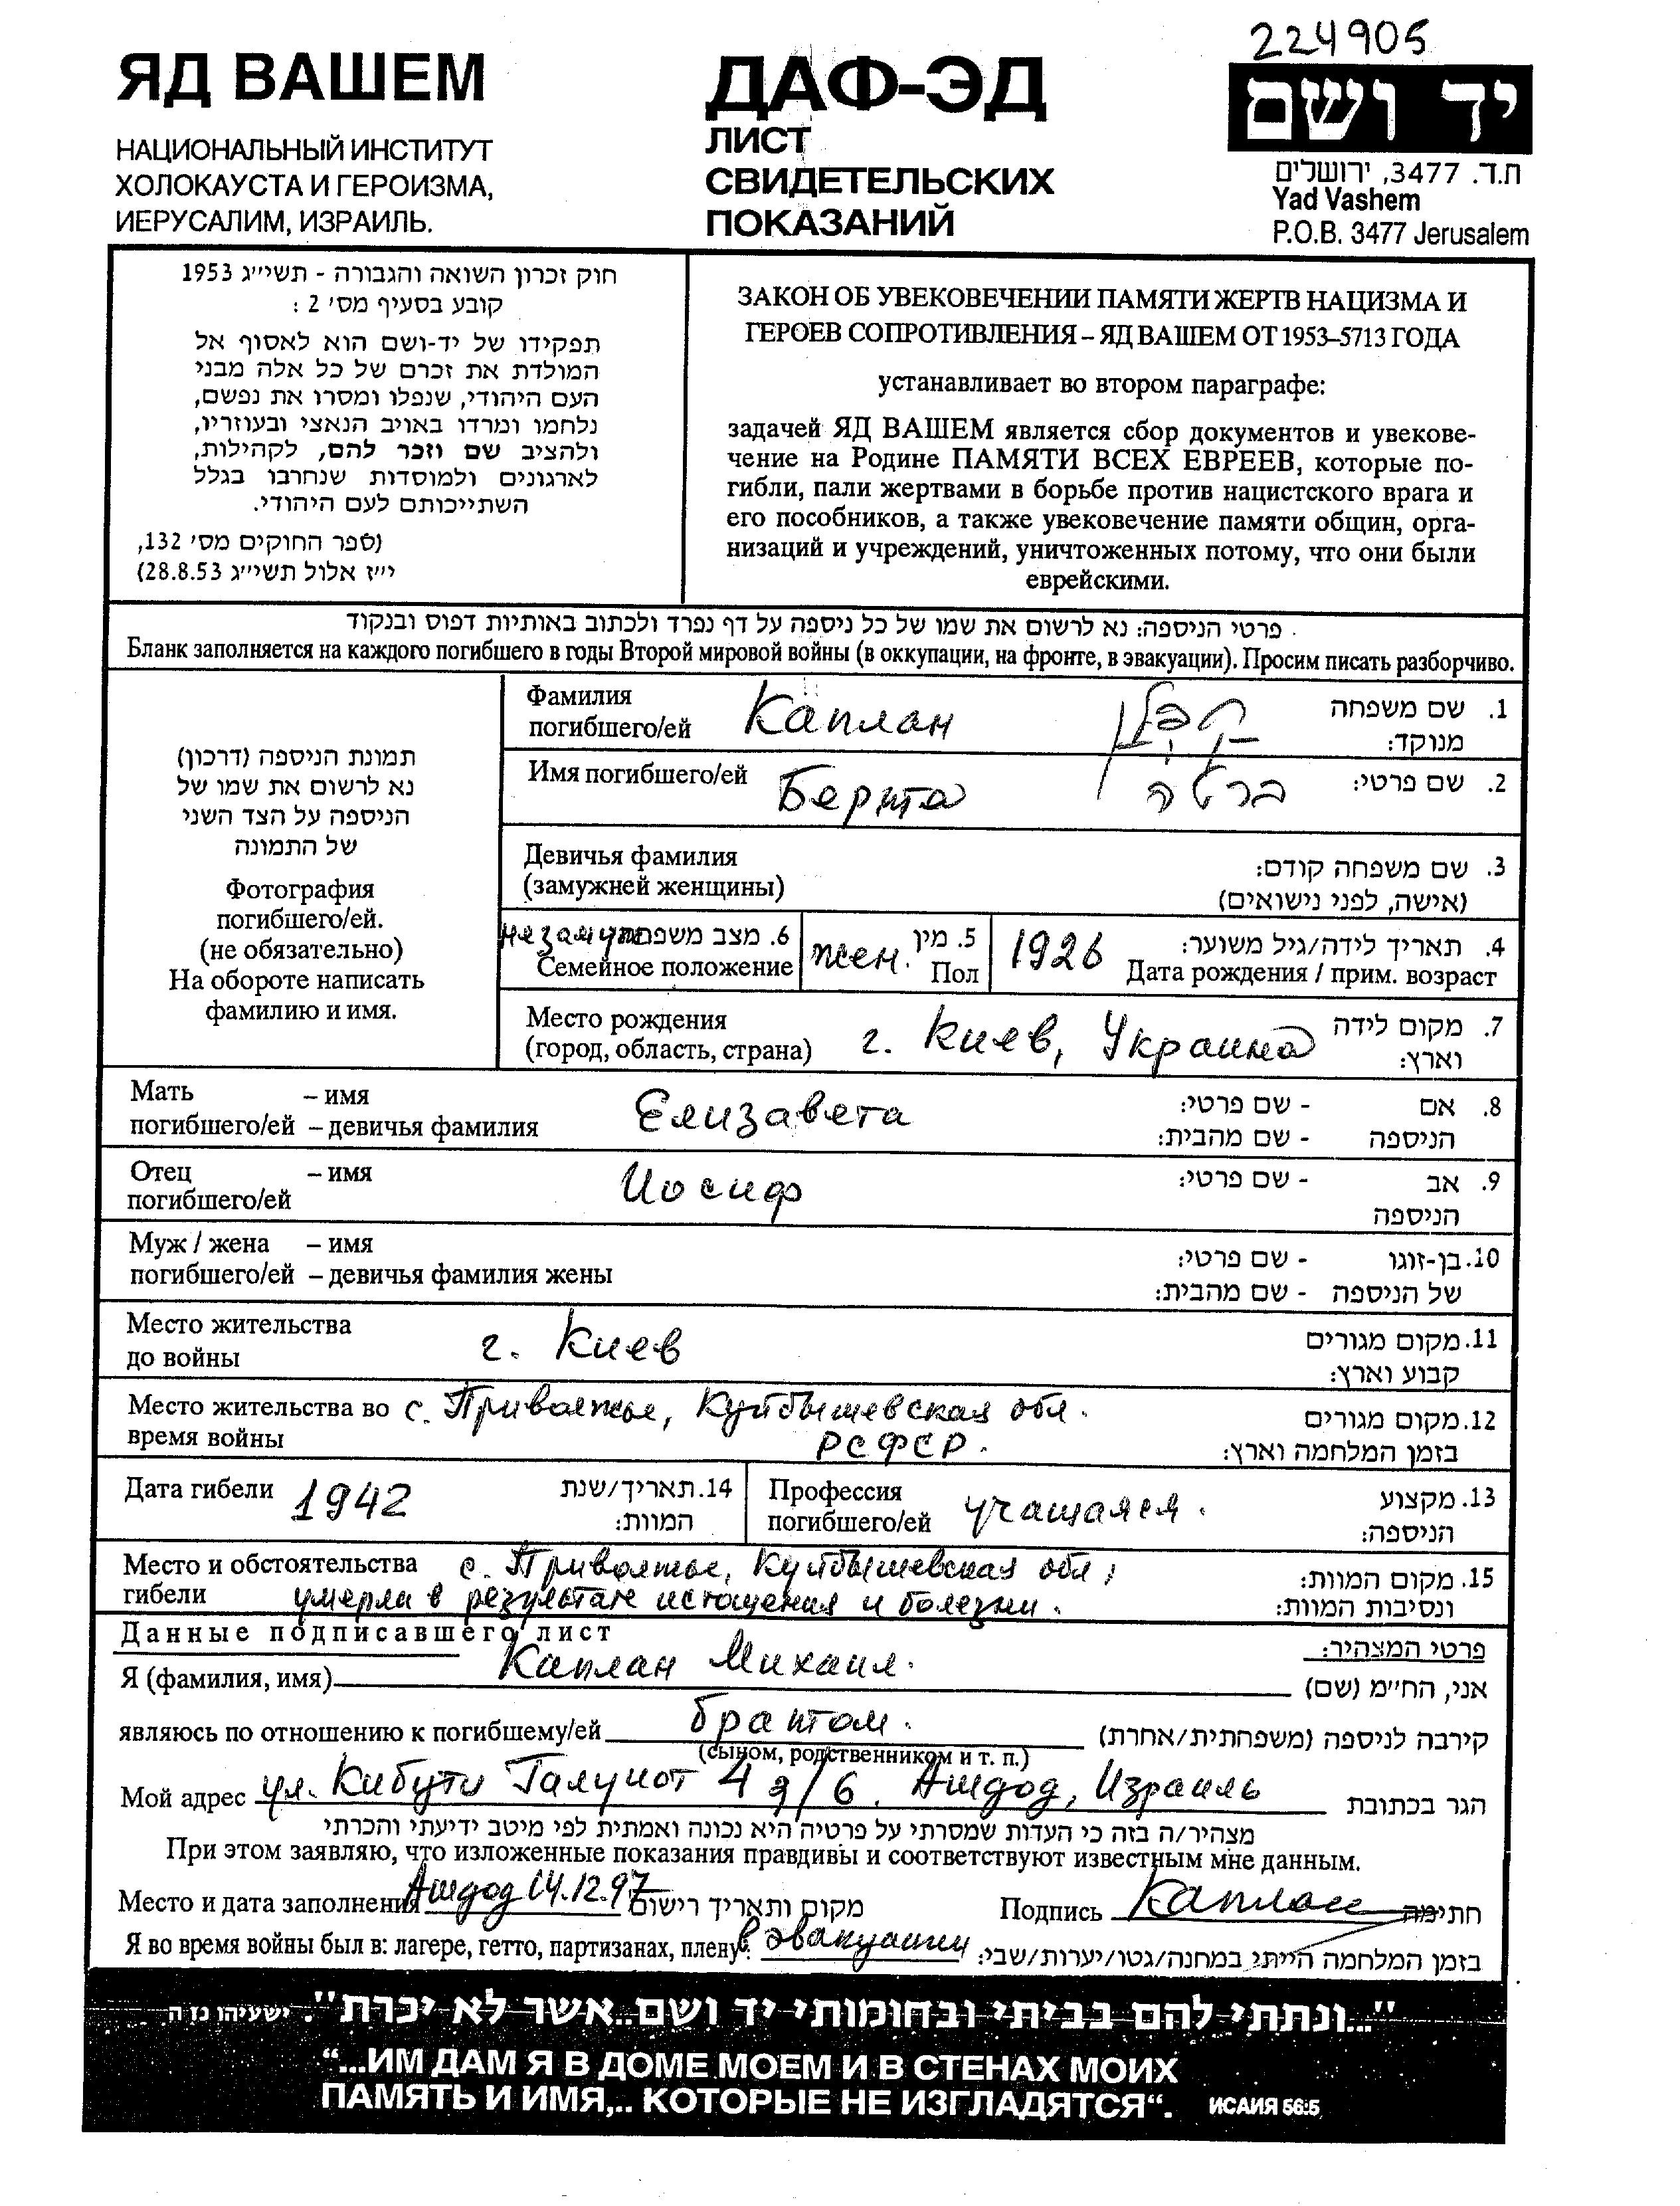 224905
ЯД ВАШЕМ
НАЦИОНАЛЬНЫЙ ИНСТИТУТ
ХОЛОКАУСТА И ГЕРОИЗМА,
ИЕРУСАЛИМ, ИЗРАИЛЬ.
ДАФ-ЭД
ЛИСТ
СВИДЕТЕЛЬСКИХ
ПОКАЗАНИЙ
יד ושם
ת.ד. 3477, ירושלים
Yad Vashem
P.O.B. 3477 Jerusalem
חוק זכרון השואה והגבורה - תשי״ג 1953
קובע בסעיף מס׳ 2 :
תפקידו של יד-ושם הוא לאסוף אל
המולדת את זכרם של כל אלה מבני
העם היהודי, שנפלו ומסרו את נפשם,
נלחמו ומרדו באויב הנאצי ובעוזריו,
ולהציב שם וזכר להם, לקהילות,
לארגונים ולמוסדות שנחרבו בגלל
השתייכותם לעם היהודי.
(ספר החוקים מס׳ 132,
י״ז אלול תשי״ג 28.8.53)
ЗАКОН ОБ УВЕКОВЕЧЕНИИ ПАМЯТИ ЖЕРТВ НАЦИЗМА И
ГЕРОЕВ СОПРОТИВЛЕНИЯ – ЯД ВАШЕМ ОТ 1953–5713 ГОДА
устанавливает во втором параграфе:
задачей ЯД ВАШЕМ является сбор документов и увекове-
чение на Родине ПАМЯТИ ВСЕХ ЕВРЕЕВ, которые по-
гибли, пали жертвами в борьбе против нацистского врага и
его пособников, а также увековечение памяти общин, орга-
низаций и учреждений, уничтоженных потому, что они были
еврейскими.
פרטי הניספה: נא לרשום את שמו של כל ניספה על דף נפרד ולכתוב באותיות דפוס ובנקוד
Бланк заполняется на каждого погибшего в годы Второй мировой войны (в оккупации, на фронте, в эвакуации). Просим писать разборчиво.
תמונת הניספה (דרכון)
נא לרשום את שמו של
הניספה על הצד השני
של התמונה
Фотография
погибшего/ей.
(не обязательно)
На обороте написать
фамилию и имя.
Фамилия
погибшего/ей Каплан קפלן 1. שם משפחה
מנוקד:
Имя погибшего/ей Берта ברטה 2. שם פרטי:
Девичья фамилия 3. שם משפחה קודם:
(замужней женщины) (אישה, לפני נישואים)
незамуж 6. מצב משפחתי
Семейное положение
жен. 5. מין
Пол
1926 4. תאריך לידה/גיל משוער:
Дата рождения / прим. возраст
Место рождения 7. מקום לידה
(город, область, страна) г. Киев, Украина וארץ:
Мать – имя Елизавета 8. אם - שם פרטי:
погибшего/ей – девичья фамилия הניספה - שם מהבית:
Отец – имя Иосиф 9. אב - שם פרטי:
погибшего/ей הניספה
Муж / жена – имя 10. בן-זוגו - שם פרטי:
погибшего/ей – девичья фамилия жены של הניספה - שם מהבית:
Место жительства 11. מקום מגורים
до войны г. Киев קבוע וארץ:
Место жительства во с. Приволжье, Куйбышевская обл. 12. מקום מגורים
время войны РСФСР. בזמן המלחמה וארץ:
Дата гибели 1942 14. תאריך/שנת
המוות:
Профессия 13. מקצוע
погибшего/ей учащаяся. הניספה:
Место и обстоятельства с. Приволжье, Куйбышевская обл, 15. מקום המוות:
гибели умерла в результате истощения и болезни. ונסיבות המוות:
Данные подписавшего лист פרטי המצהיר:
Я (фамилия, имя) Каплан Михаил. אני, הח״מ (שם)
являюсь по отношению к погибшему/ей братом. קירבה לניספה (משפחתית/אחרת)
(сыном, родственником и т. п.)
Мой адрес ул. Кибути Галуиот 4 д/6. Ашдод, Израиль הגר בכתובת
מצהיר/ה בזה כי העדות שמסרתי על פרטיה היא נכונה ואמתית לפי מיטב ידיעתי והכרתי
При этом заявляю, что изложенные показания правдивы и соответствуют известным мне данным.
Место и дата заполнения Ашдод 14.12.97 מקום ותאריך רישום Подпись Каплан חתימה
Я во время войны был в: лагере, гетто, партизанах, плену: в эвакуации בזמן המלחמה הייתי במחנה/גטו/יערות/שבי:
"...ונתתי להם בביתי ובחומותי יד ושם..אשר לא יכרת". ישעיהו נו ה
“...ИМ ДАМ Я В ДОМЕ МОЕМ И В СТЕНАХ МОИХ
ПАМЯТЬ И ИМЯ,.. КОТОРЫЕ НЕ ИЗГЛАДЯТСЯ“. ИСАИЯ 56:5